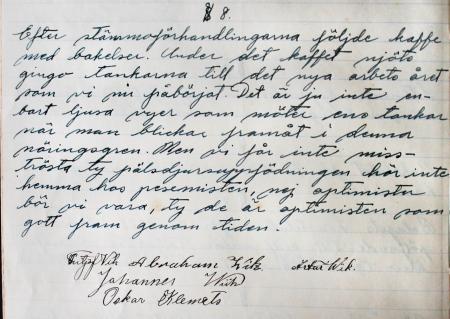 § 8.
Efter stämmoförhandlingarna följde kaffe
med bakelser. Under det kaffet njöts
gingo tankarna till det nya arbets året
som vi nu påbörjat. Det är ju inte en-
bart ljusa vyer som möter ens tankar
när man blickar framåt i denna
näringsgren. Men vi får inte miss-
trösta ty pälsdjursuppfödningen hör inte
hemma hos pesemisten, nej optimister
bör vi vara, ty de är optimisten som
gott fram genom tiden.
Abraham Wik Artur Wik.
Johannes Wik
Oskar Klemets